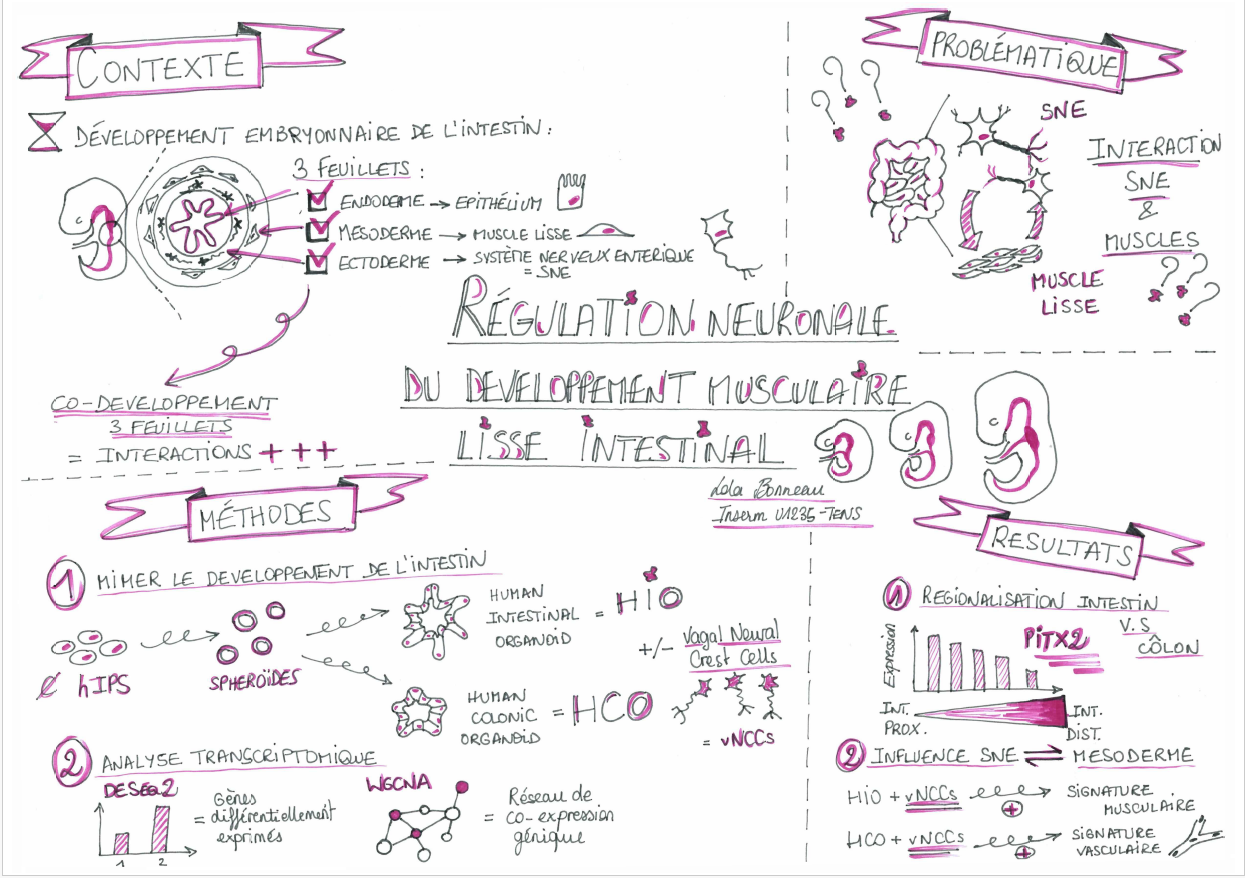 CONTEXTE
DÉVELOPPEMENT EMBRYONNAIRE DE L'INTESTIN :
3 FEUILLETS :
ENDODERME → EPITHÉLIUM
MESODERME → MUSCLE LISSE
ECTODERME → SYSTÈME NERVEUX ENTERIQUE
= SNE
CO-DEVELOPPEMENT
3 FEUILLETS
= INTERACTIONS +++
PROBLÉMATIQUE
? ? ?
SNE
MUSCLE
LISSE
INTERACTION
SNE
&
MUSCLES
? ? ?
RÉGULATION NEURONALE
DU DEVELOPPEMENT MUSCULAIRE
LISSE INTESTINAL
Lola Bonneau
Inserm U1235-TENS
MÉTHODES
1 MIMER LE DEVELOPPENENT DE L'INTESTIN
hIPS
SPHEROÏDES
HUMAN
INTESTINAL
ORGANOID
= HIO
HUMAN
COLONIC
ORGANOID
= HCO
+/- Vagal Neural
Crest Cells
= vNCCs
2 ANALYSE TRANSCRIPTOMIQUE
DESEQ2
1 2
= Gènes
différentiellement
exprimés
WGCNA
= Réseau de
co-expression
génique
RESULTATS
1 REGIONALISATION INTESTIN
V.S
CÔLON
Expression
PITX2
INT.
PROX.
INT.
DIST.
2 INFLUENCE SNE ⇌ MESODERME
HIO + vNCCs + SIGNATURE
MUSCULAIRE
HCO + vNCCs + SIGNATURE
VASCULAIRE